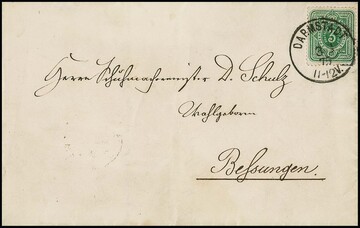 DARMSTADT
3
11-12V.
Herrn Schuhmachermeister D. Schulz
Wohlgeboren
Bessungen.